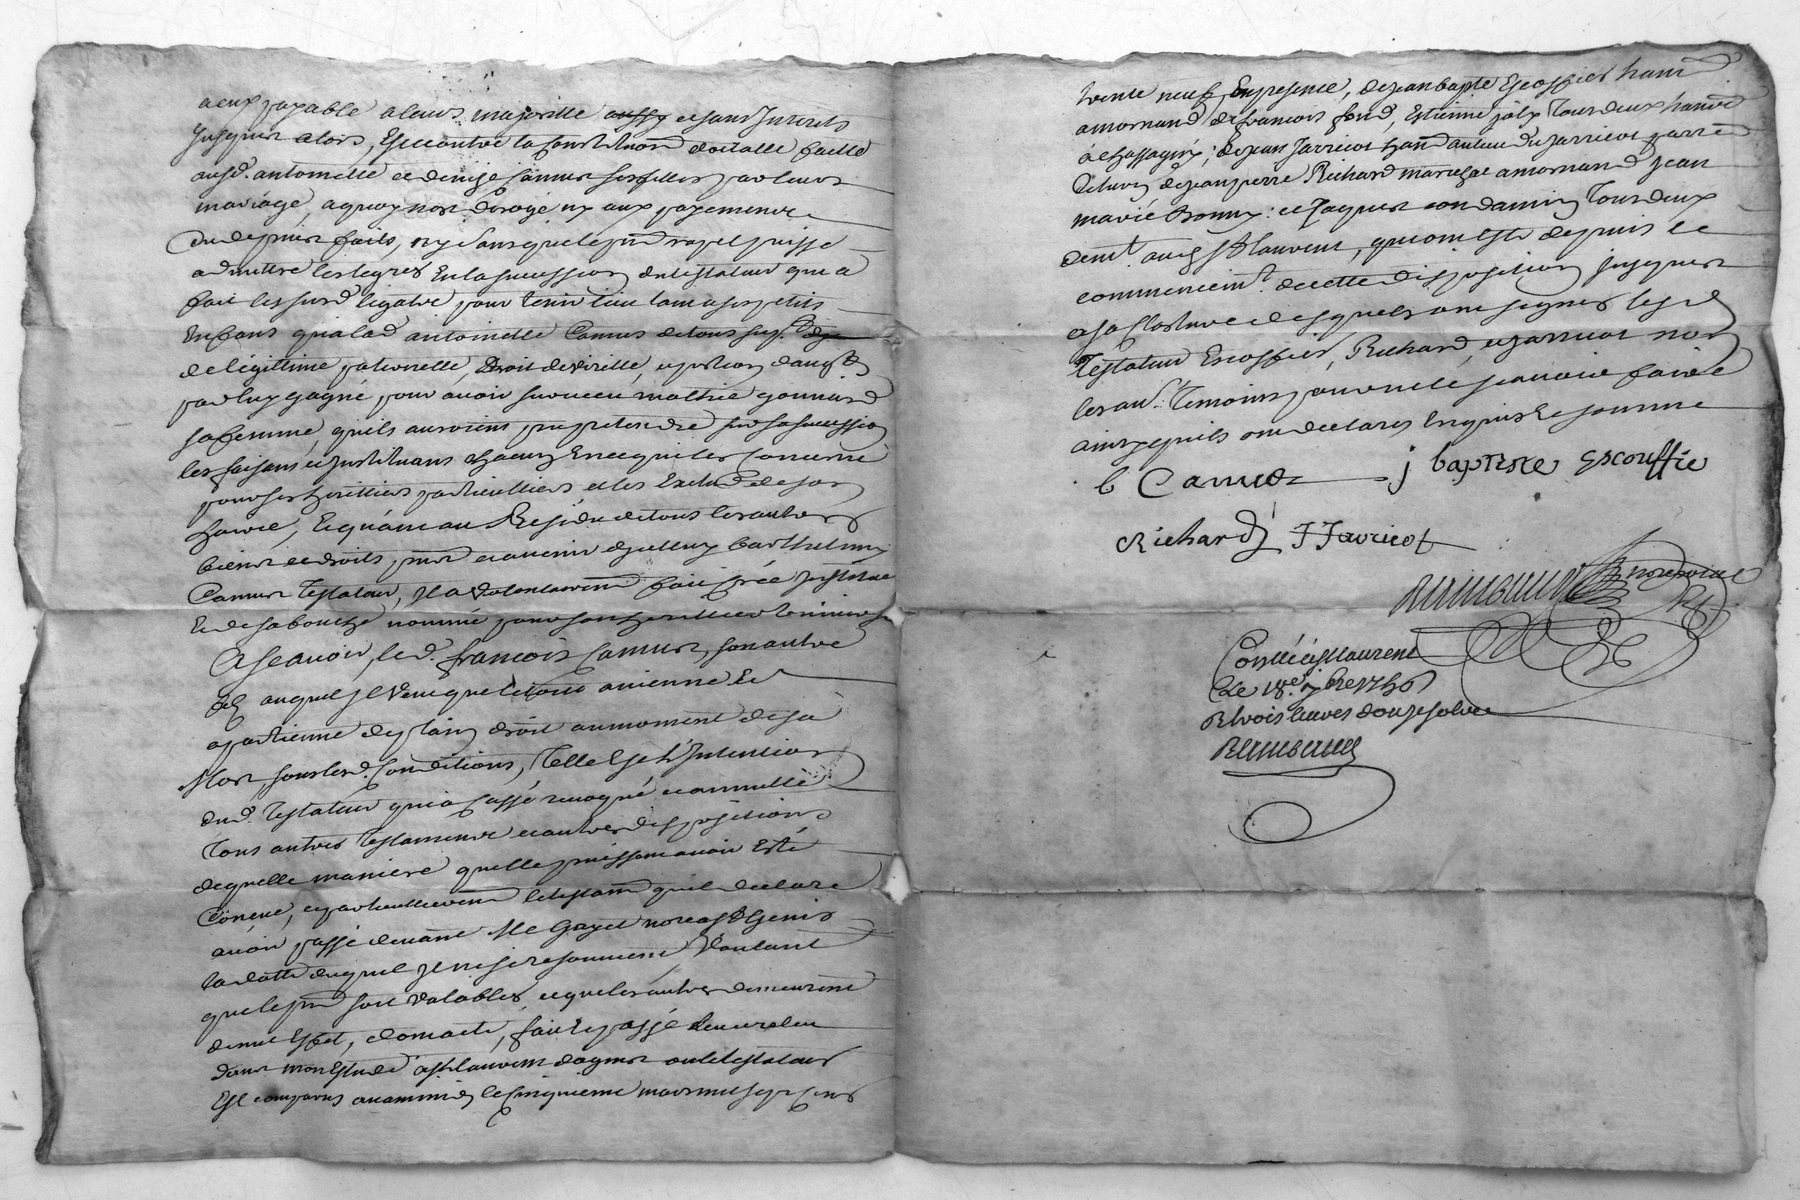 a eux payable a leurs majoritté aussy et sans Interets
Jusques alors, Et contre la Constitution dotalle faitte
ausd. antoinette et denize Camus ses filles par leurs
mariage, a quoy n'est derogé ny aux payements
du depuis faits, ny sans que le pnt rapel puisse
admettre les legrés En la succession du testateur qui a
fait les susd. legats pour tenir lieu tant a ses petits
Enfans qu'a lad. antoinette Camus de tous
de legittime paternelle, Droit de virille, et portion d'aug.
par luy gagné pour avoir survecu mathie gonnard
sa femme, qu'ils auroient pu pretendre sur sa succession
les faisant et Instituant chacun En ce qui les Concerne
pour ses heritiers particulliers et les Exclud de son
hoirie, Et quand au Residu de tous les autres
biens et droits, pnts et avenir dud. barthelemy
Camus testateur, Il a volontairemt fait créé Institué
Et de sa bouche nommé pour son heritier universel
Asçavoir, led. françois Camus, son autre
fils auquel Il veut que le tout avienne Et
apartienne de plain droit au moment de sa
Mort sous lesd. Conditions, Telle Est l'Intention
dud. Testateur qui a Cassé revoqué et annullé
Tous autres testaments et autres dispositions
de quelle maniere qu'elle puissent avoir Esté
Conçue, et particullierement le testamt qu'il declare
avoir passé devant Me Gayet nore a St Genis
la datte duquel Il n'est resouvenu, Voulant
que le pnt soit valables, et que les autres demeurent
de nul Effet, dont acte, fait Et passé
dans mon Etude a St laurent dagnis ou le testateur
Est comparus avant midy le Cinquieme mars mil sept Cents
trente neuf En presence, de Jean bapte Escoffier hant
a mornand de francois fond, Estienne Tous deux hants
a Chassagny; de Jean Jarricot hant au lieu du Jarricot parre
de Jean pierre Richard marechal a mornand Jean
marie Bonny: et Jaques condamin Tous deux
demt. aud St laurent, qui ont Esté depuis le
commencemt. de cette disposition Jusques
a sa Closture desquels ont signés lesd.
Testateur Escoffier, Richard, et Jarricot non
les aut. Temoins pour ne le sçavoir faire
ainsy qu'ils ont declarés Enquis Et sommé
b Camus j baptiste Escouffie
Richard J Jarricot
Rambaud nore royal
Conllé a St laurent
Le 18e 9bre 1736
R trois livres douze sols
Rambaud